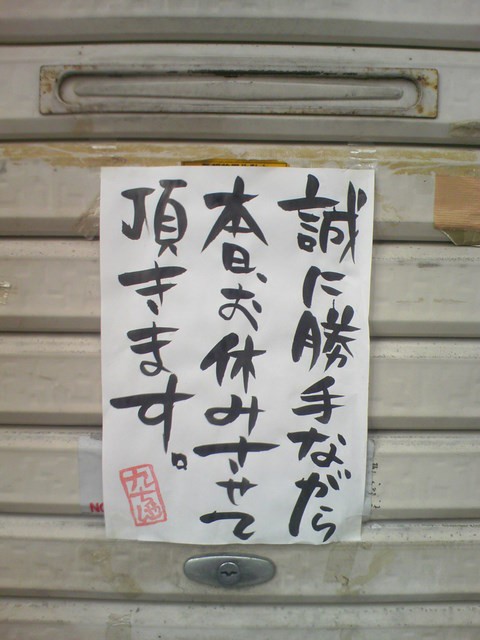 誠に勝手ながら
本日、お休みさせて
頂きます。
NO